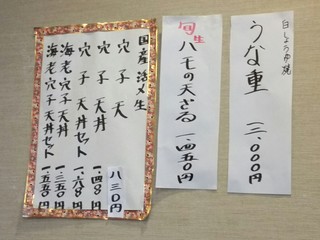 白しょうゆ焼
うな重 三、000円
旬生
ハモの天ざる 一.四五0円
国産活〆生
穴子天 八三0円
穴子天丼 一.四00円
穴子天丼セット 一.六00円
海老穴子天丼 一.三五0円
海老穴子天丼セット 一.五五0円